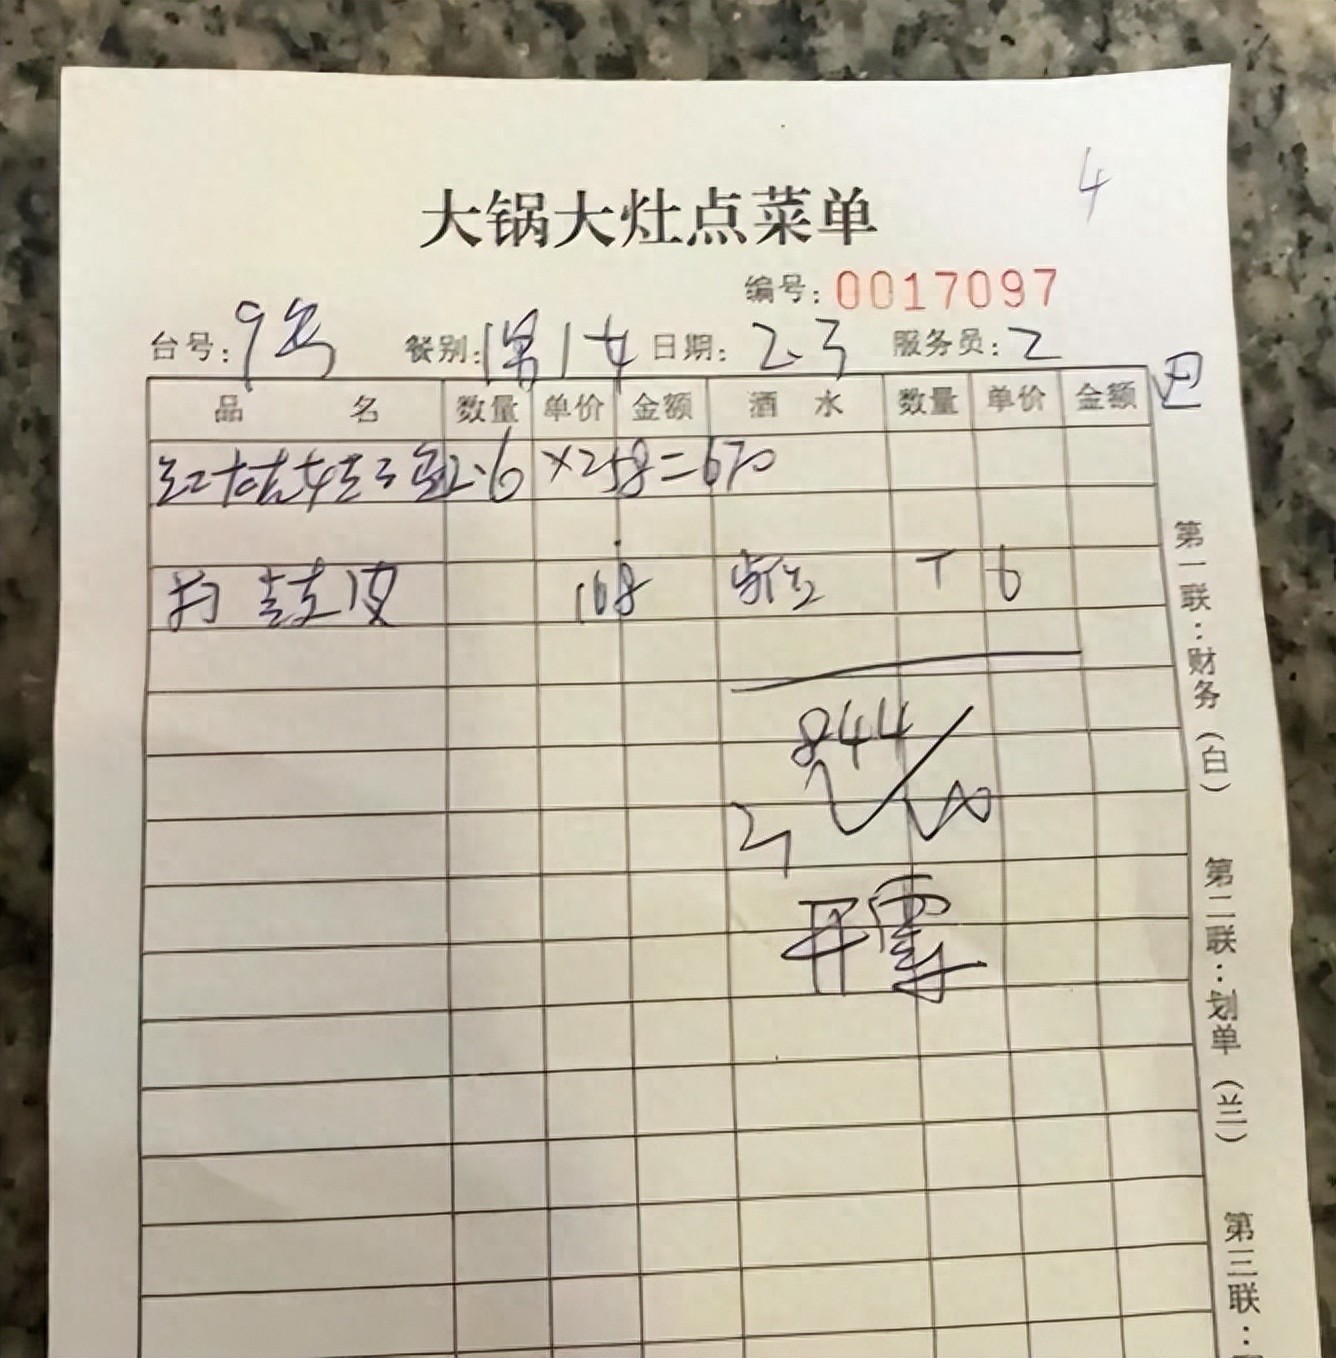 4
大锅大灶点菜单
编号: 0017097
台号: 9号 餐别: 1男1女 日期: 2.3 服务员: 2
品 名 数量 单价 金额 酒 水 数量 单价 金额
2.6 ×258=670
打鼓皮 168 餐位 T 6
844
开票
第一联:财务(白) 第二联:划单(兰) 第三联: